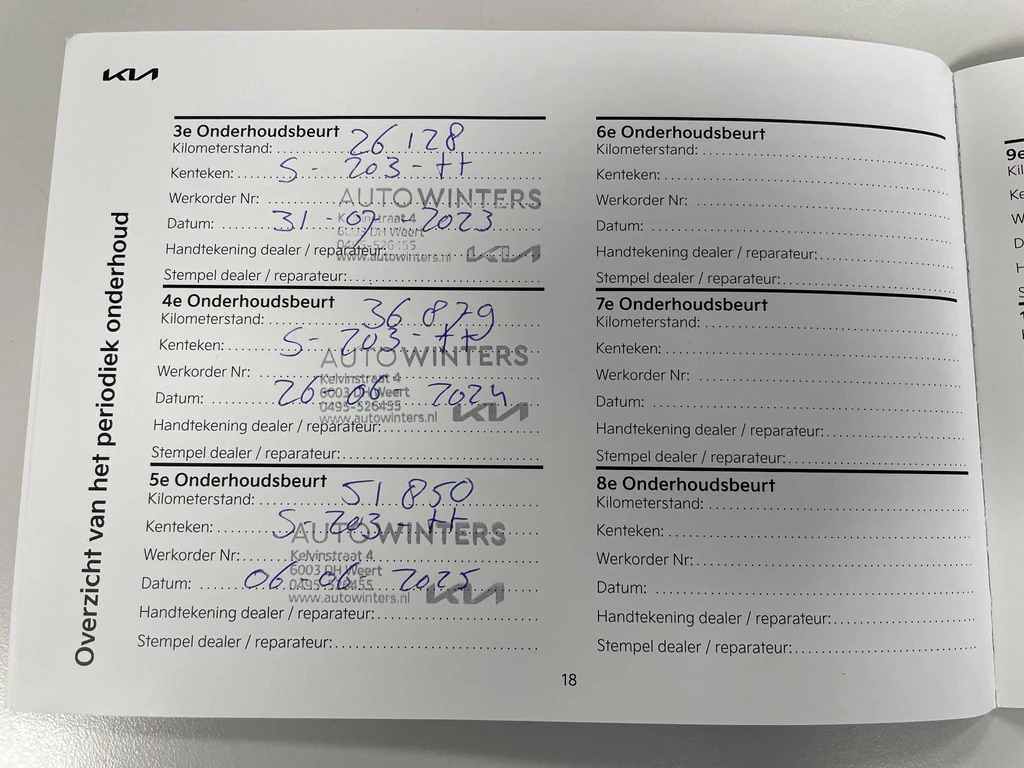 KIA
Overzicht van het periodiek onderhoud
3e Onderhoudsbeurt
Kilometerstand: 26 128
Kenteken: S-203-tt
Werkorder Nr:
Datum: 31-07-2023
Handtekening dealer / reparateur:
Stempel dealer / reparateur:
AUTO WINTERS
6003 DH Weert
0495-526455
www.autowinters.nl
KIA
4e Onderhoudsbeurt
Kilometerstand: 36 879
Kenteken: S-203-tt
Werkorder Nr:
Datum: 26-06-2024
Handtekening dealer / reparateur:
Stempel dealer / reparateur:
AUTO WINTERS
Kelvinstraat 4
6003 DH Weert
0495-526455
www.autowinters.nl
KIA
5e Onderhoudsbeurt
Kilometerstand: 51 850
Kenteken: S-203-tt
Werkorder Nr:
Datum: 06-06-2025
Handtekening dealer / reparateur:
Stempel dealer / reparateur:
AUTO WINTERS
Kelvinstraat 4
6003 DH Weert
0495-526455
www.autowinters.nl
KIA
6e Onderhoudsbeurt
Kilometerstand:
Kenteken:
Werkorder Nr:
Datum:
Handtekening dealer / reparateur:
Stempel dealer / reparateur:
7e Onderhoudsbeurt
Kilometerstand:
Kenteken:
Werkorder Nr:
Datum:
Handtekening dealer / reparateur:
Stempel dealer / reparateur:
8e Onderhoudsbeurt
Kilometerstand:
Kenteken:
Werkorder Nr:
Datum:
Handtekening dealer / reparateur:
Stempel dealer / reparateur:
18
9e